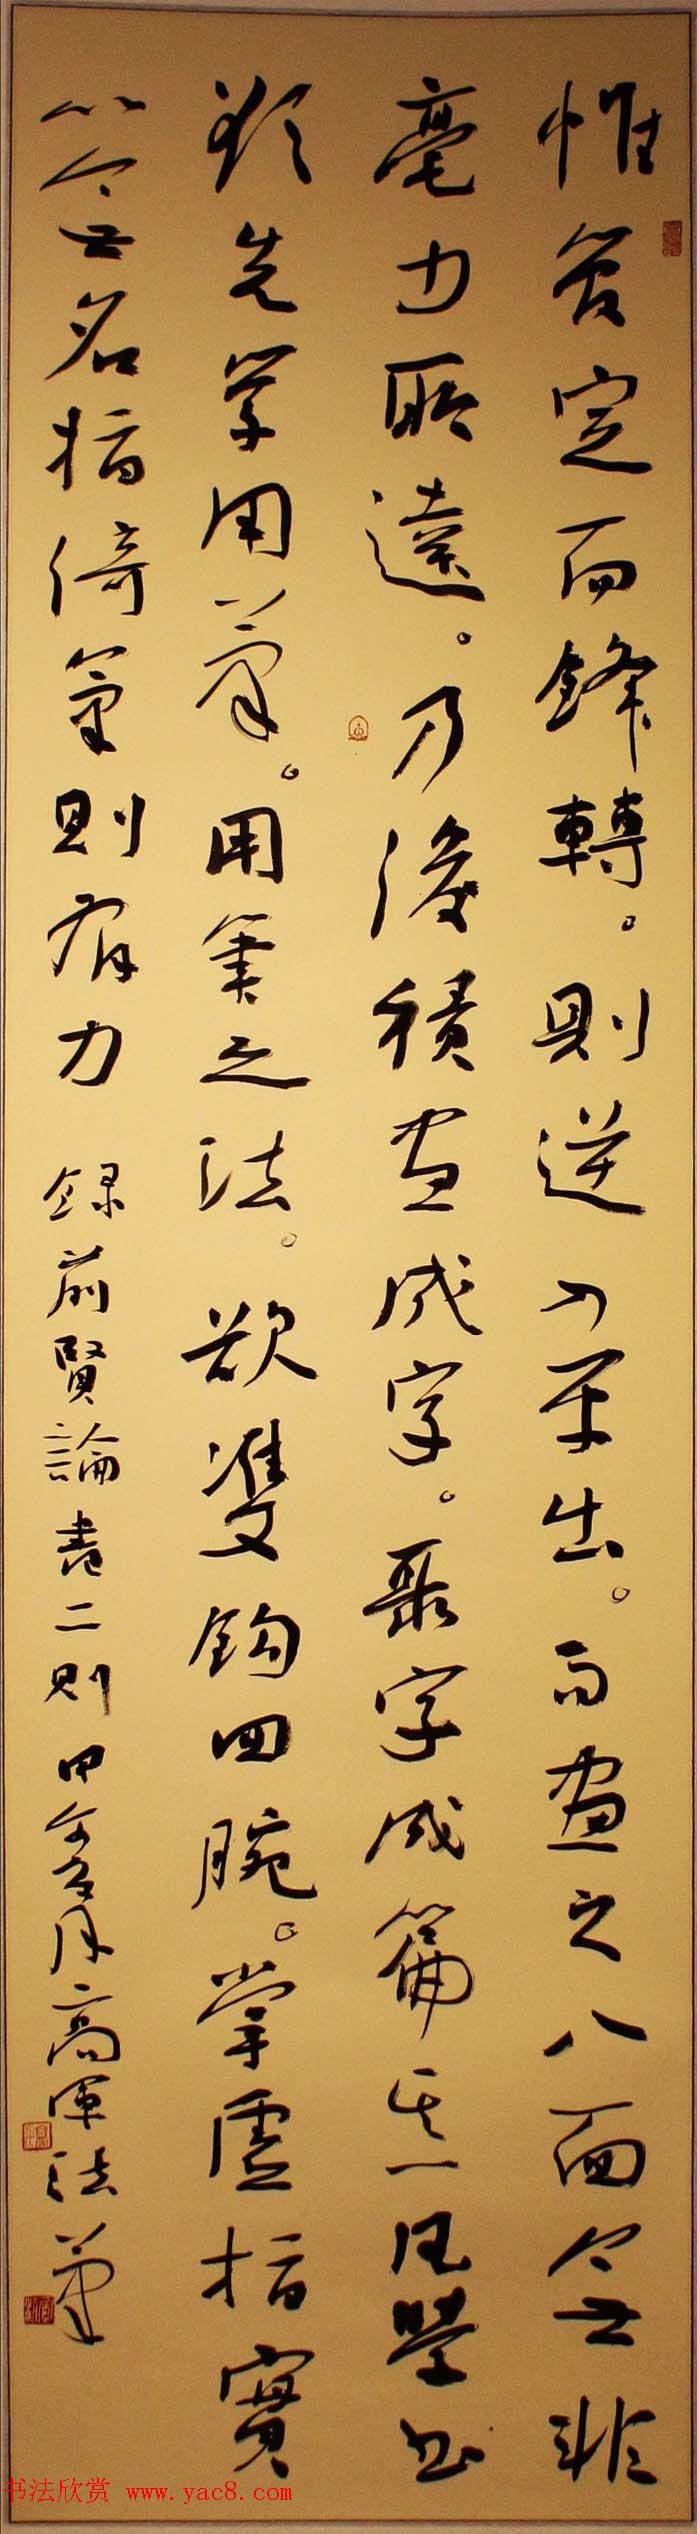 惟管定而鋒轉。則逆入平出。而畫之八面無非
毫力所達。乃後積畫成字。聚字成篇 其一 凡學書
欲先學用筆。用筆之法。欲雙鈎回腕。掌虛指實
以無名指倚筆則有力 錄前賢論書二則 甲午夏月高軍法筆
书法欣赏 www.yac8.com